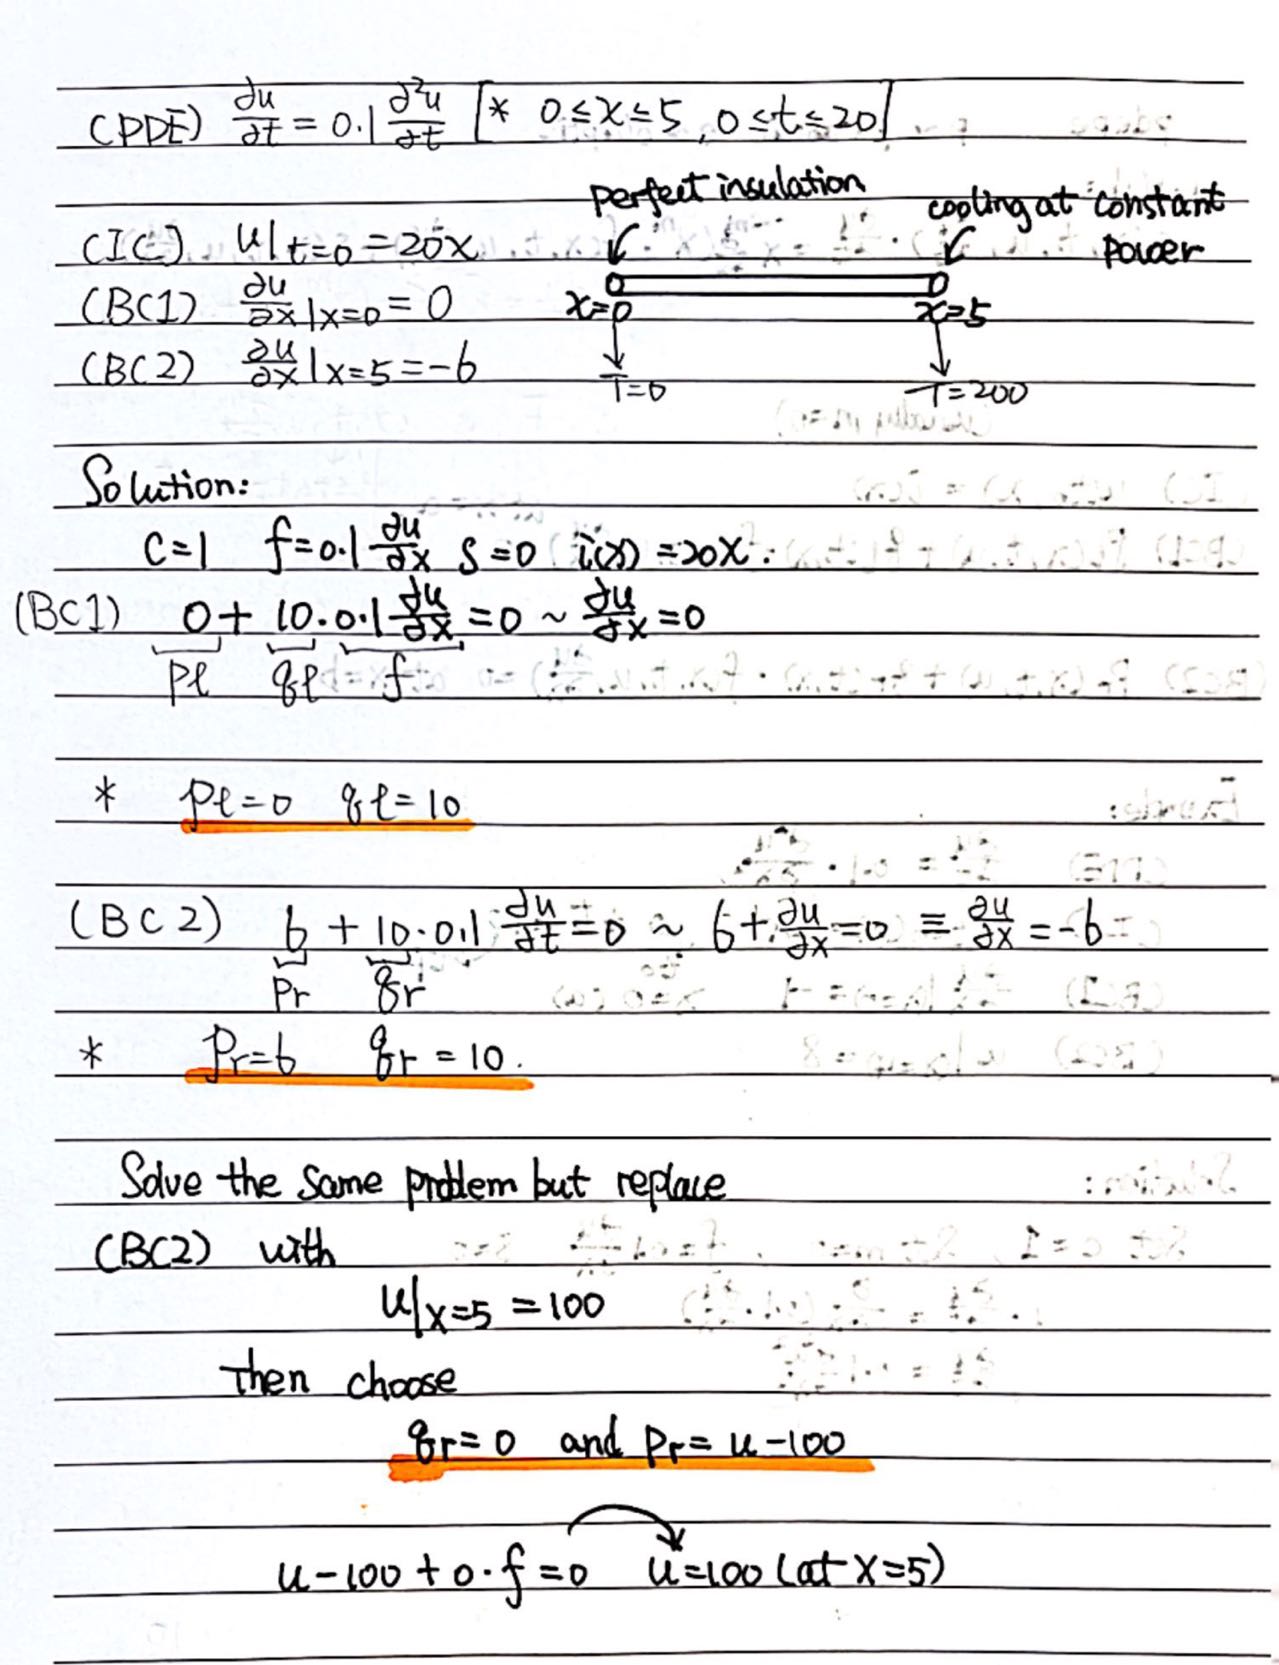 (PDE) ∂u/∂t = 0.1 ∂²u/∂t [* 0≤x≤5, 0≤t≤20]
perfect insulation
cooling at constant
power
(IC) u|t=0 = 20x
(BC1) ∂u/∂x|x=0 = 0
x=0 x=5
(BC2) ∂u/∂x|x=5 = -6
T=0 T=200
Solution:
C=1 f=0.1 ∂u/∂x S=0 i(x)=20x.
(BC1) 0 + 10·0.1 ∂u/∂x = 0 ~ ∂u/∂x = 0
pl ql f
* pl=0 ql=10
(BC2) 6 + 10·0.1 ∂u/∂t = 0 ~ 6+∂u/∂x=0 ≡ ∂u/∂x = -6
Pr qr
* Pr=6 qr=10.
Solve the same problem but replace
(BC2) with
u|x=5 = 100
Then choose
qr=0 and Pr=u-100
u-100+0·f=0 u=100 (at x=5)